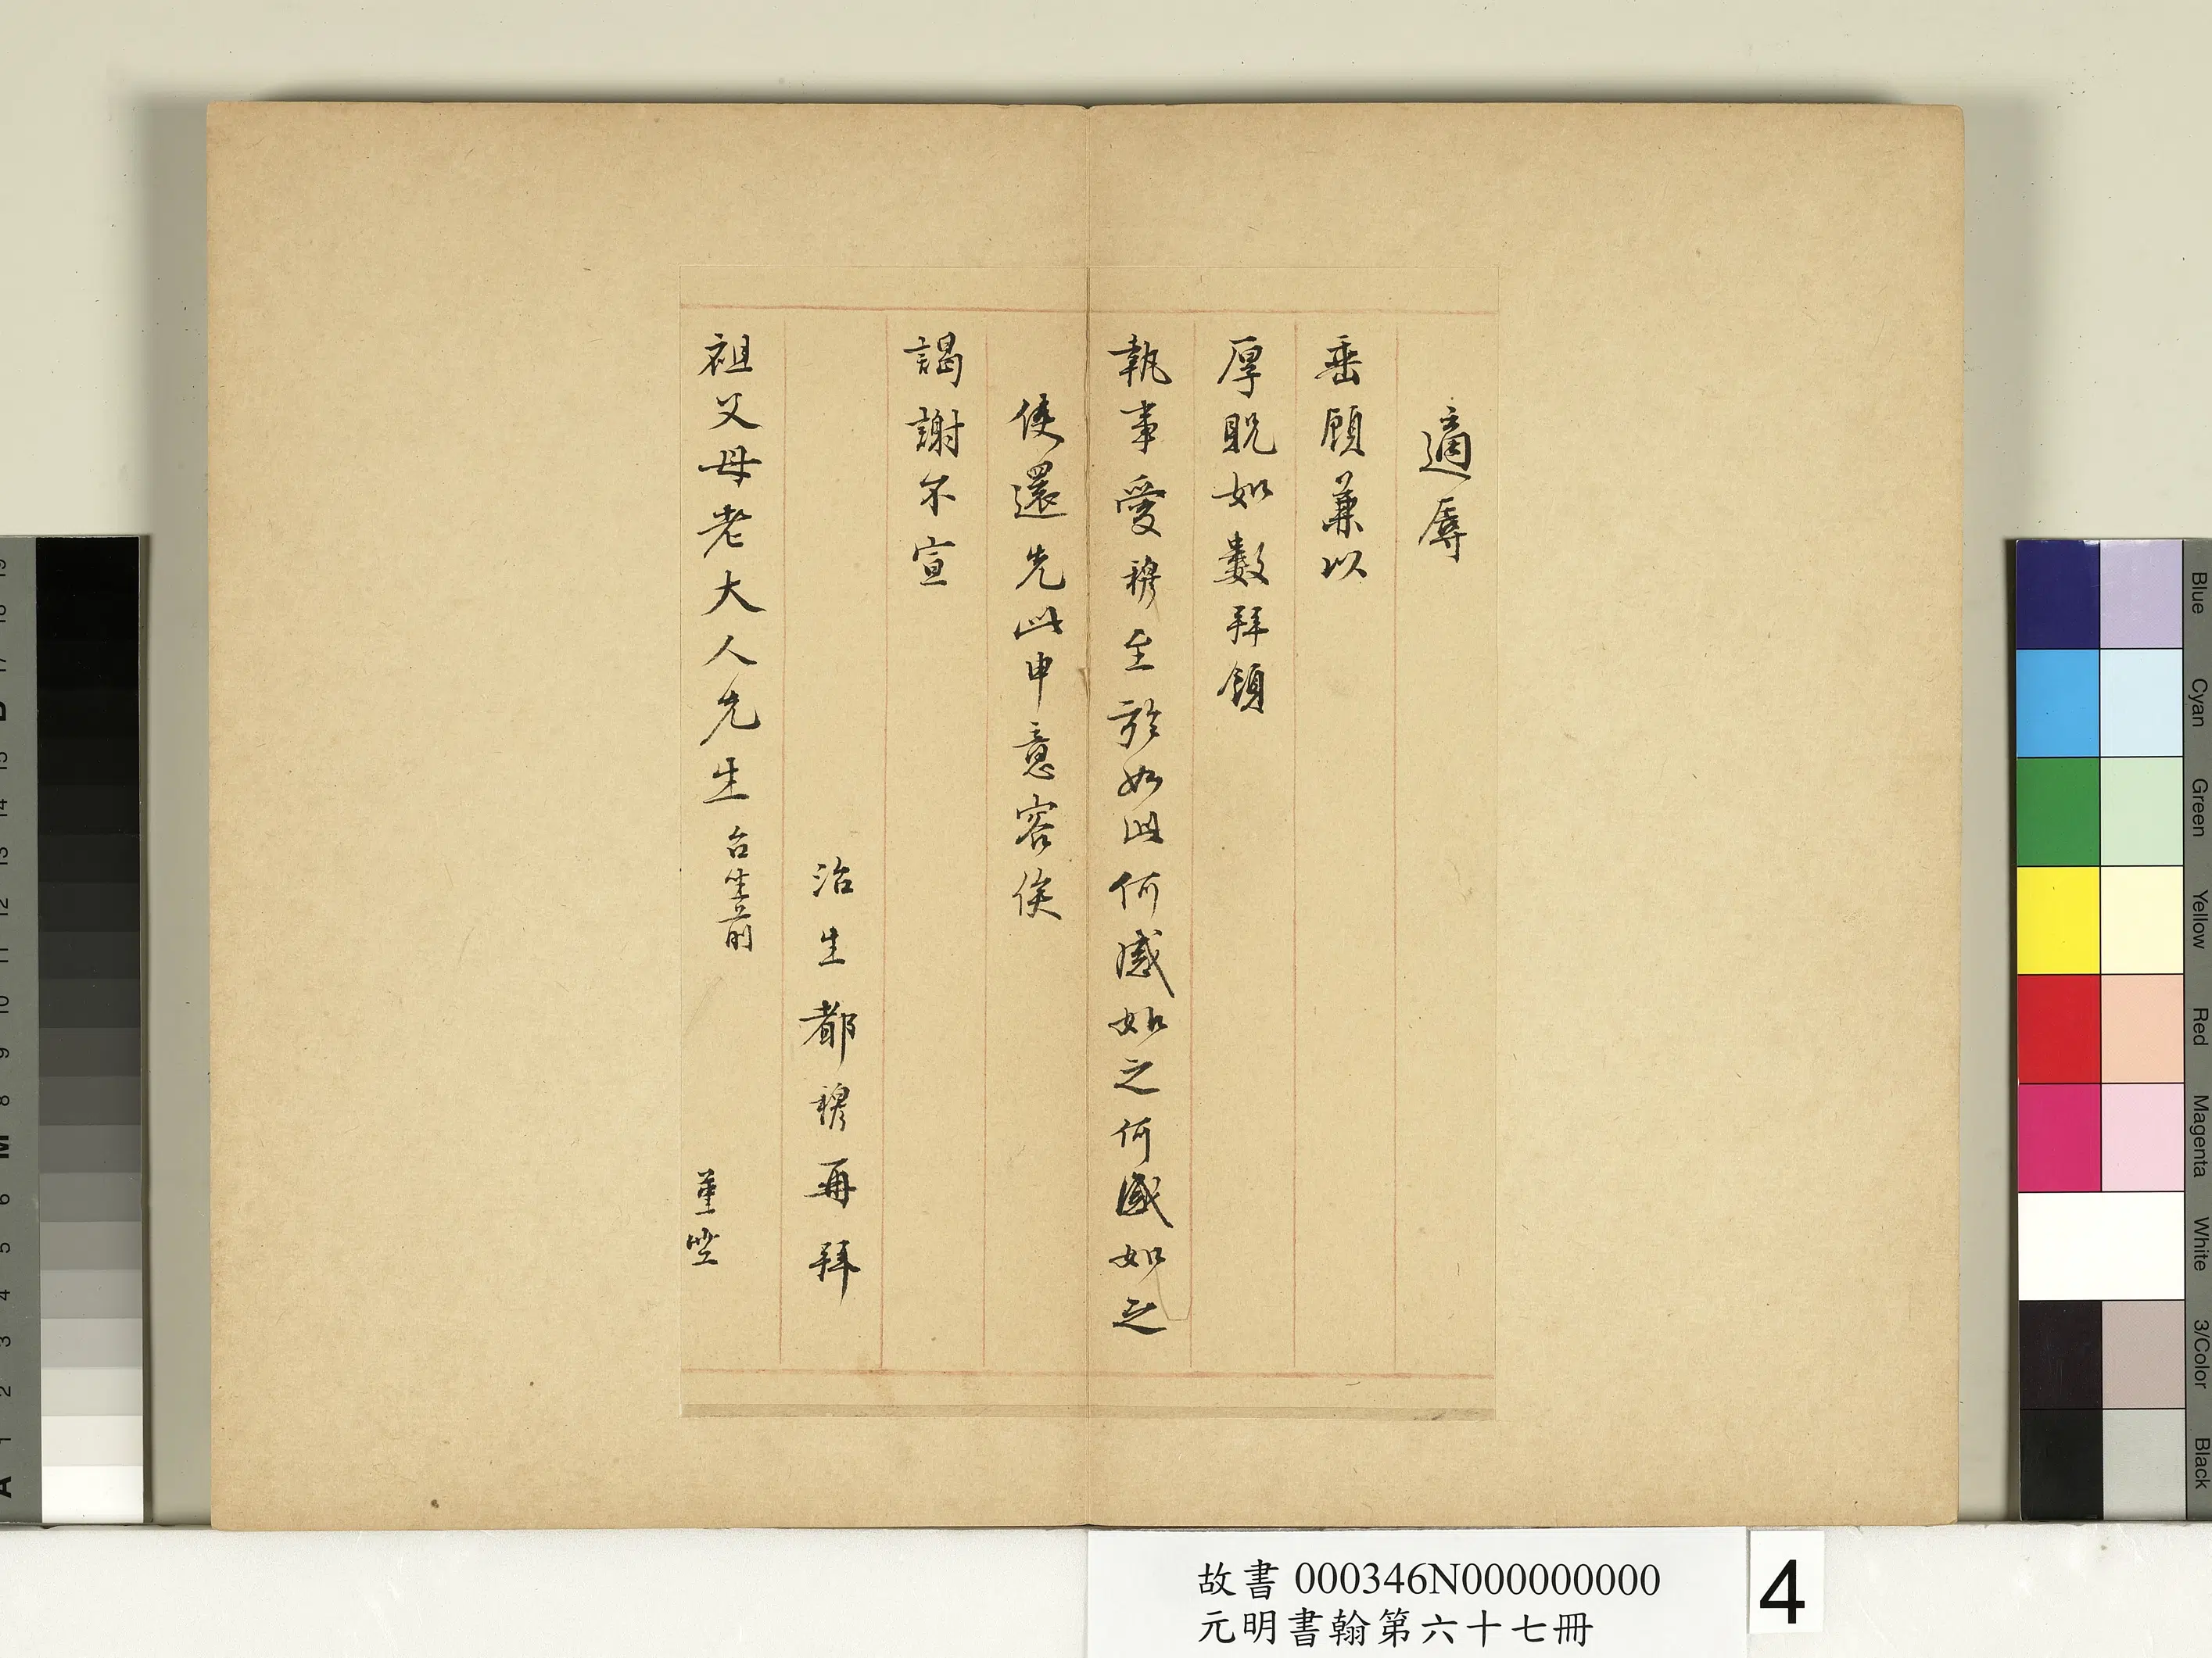 適辱
垂顧兼以
厚貺如數拜領
執事愛穆至於如此何感如之何感如之
使還先此申意容俟
謁謝不宣
治生都穆再拜
祖父母老大人先生 台坐前
謹空
故書 000346N000000000
元明書翰第六十七冊
4
Blue
Cyan
Green
Yellow
Red
Magenta
White
3/Color
Black
A 1 2 3 4 5 6 M 8 9 10 11 12 13 14 15 B 17 18 19